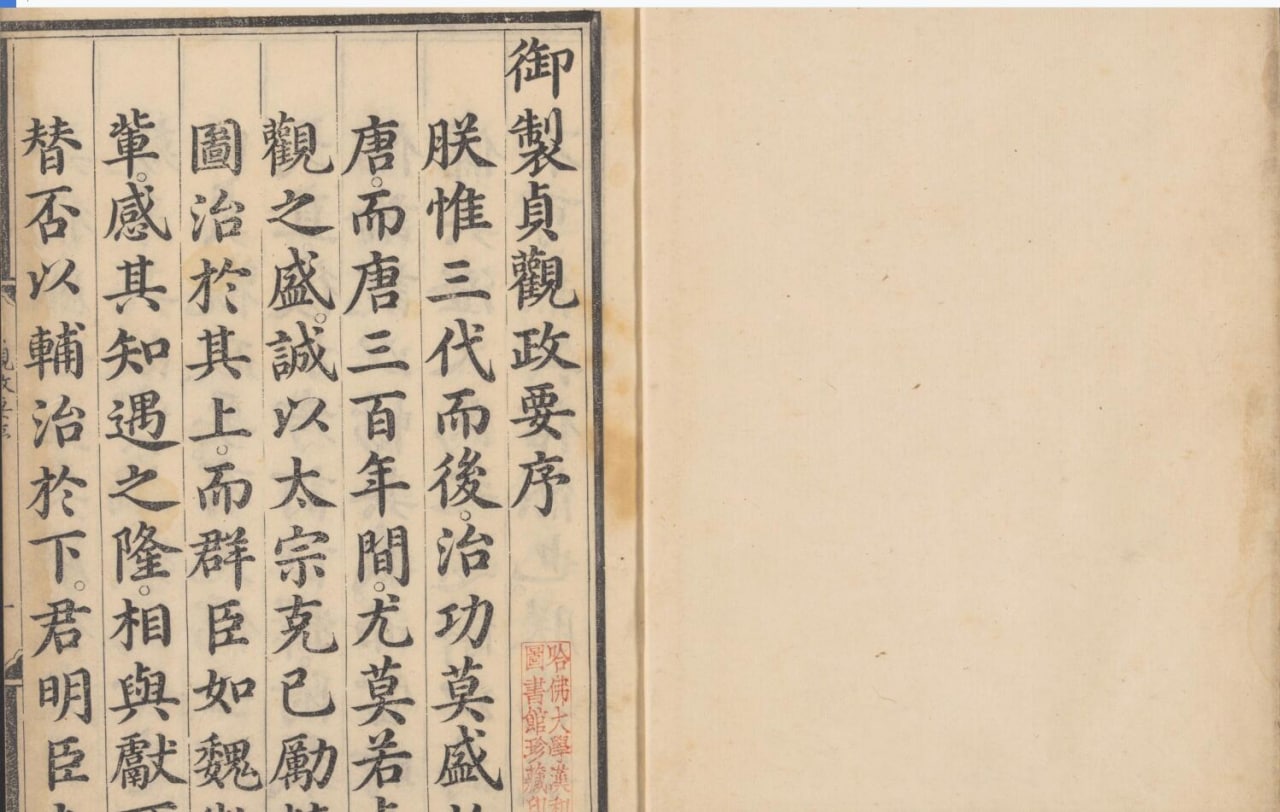 御製貞觀政要序
朕惟三代而後。治功莫盛
唐。而唐三百年間。尤莫若
觀之盛。誠以太宗克己勵
圖治於其上。而群臣如魏
軰。感其知遇之隆。相與獻
替否以輔治於下。君明臣
哈佛大學漢和
圖書館珍藏印